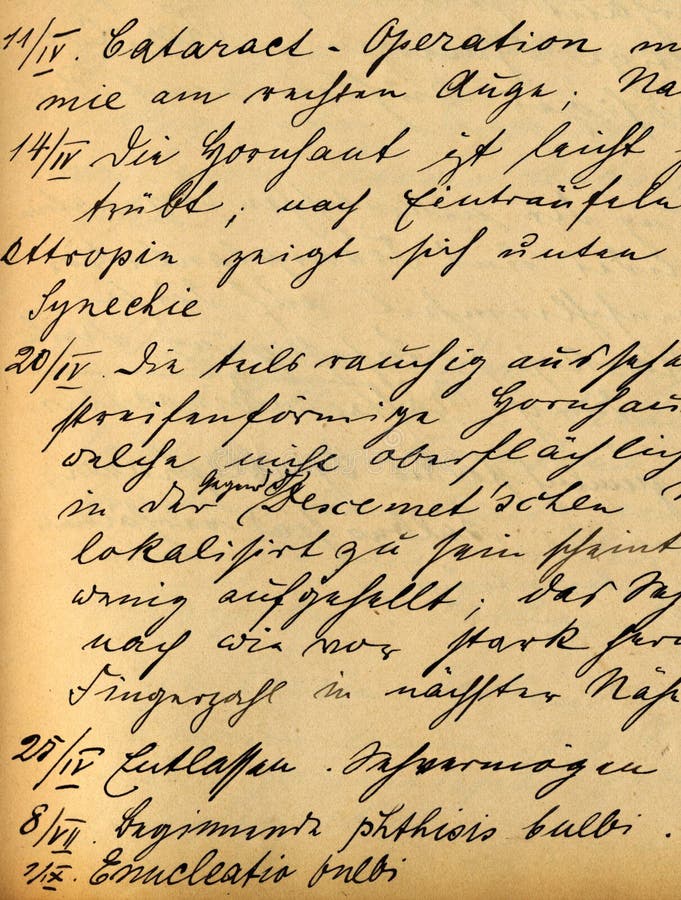 11/IV. Cataract - Operation m
mie am rechten Auge; Na
14/IV Die Hornhaut ist leicht
trübt; nach Einträufeln
Attropin zeigt sich unten
Synechie
20/IV. Die teils rauchig aussehe
streifenförmige Hornhau
welche nicht oberflächlich
Gegend der
in der Descemet'schen
lokalisirt zu sein scheint
wenig aufgehellt; das Seh
nach wie vor stark her
Fingerzahl in nächster Nähe
25/IV Entlassen. Sehvermögen
8/VII. Beginnende phthisis bulbi.
1/IX. Enucleatio bulbi